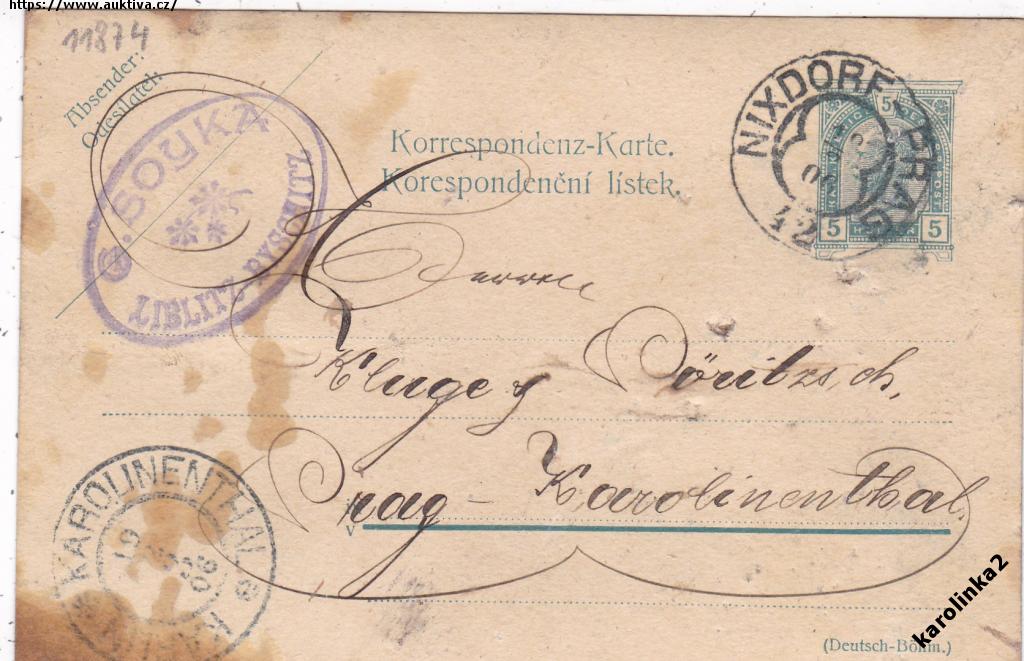 https://www.auktiva.cz/
11874
Absender:
Odesílatel:
SOUKA
LIBLITZ
Korrespondenz-Karte.
Korespondenční lístek.
NIXDORF - PRAG
12
5 5
5 HELLER 5
Herrn
Kluge & Pöritzsch,
Prag - Karolinenthal.
KAROLINENTHAL
19
06
(Deutsch-Böhm.)
karolinka2